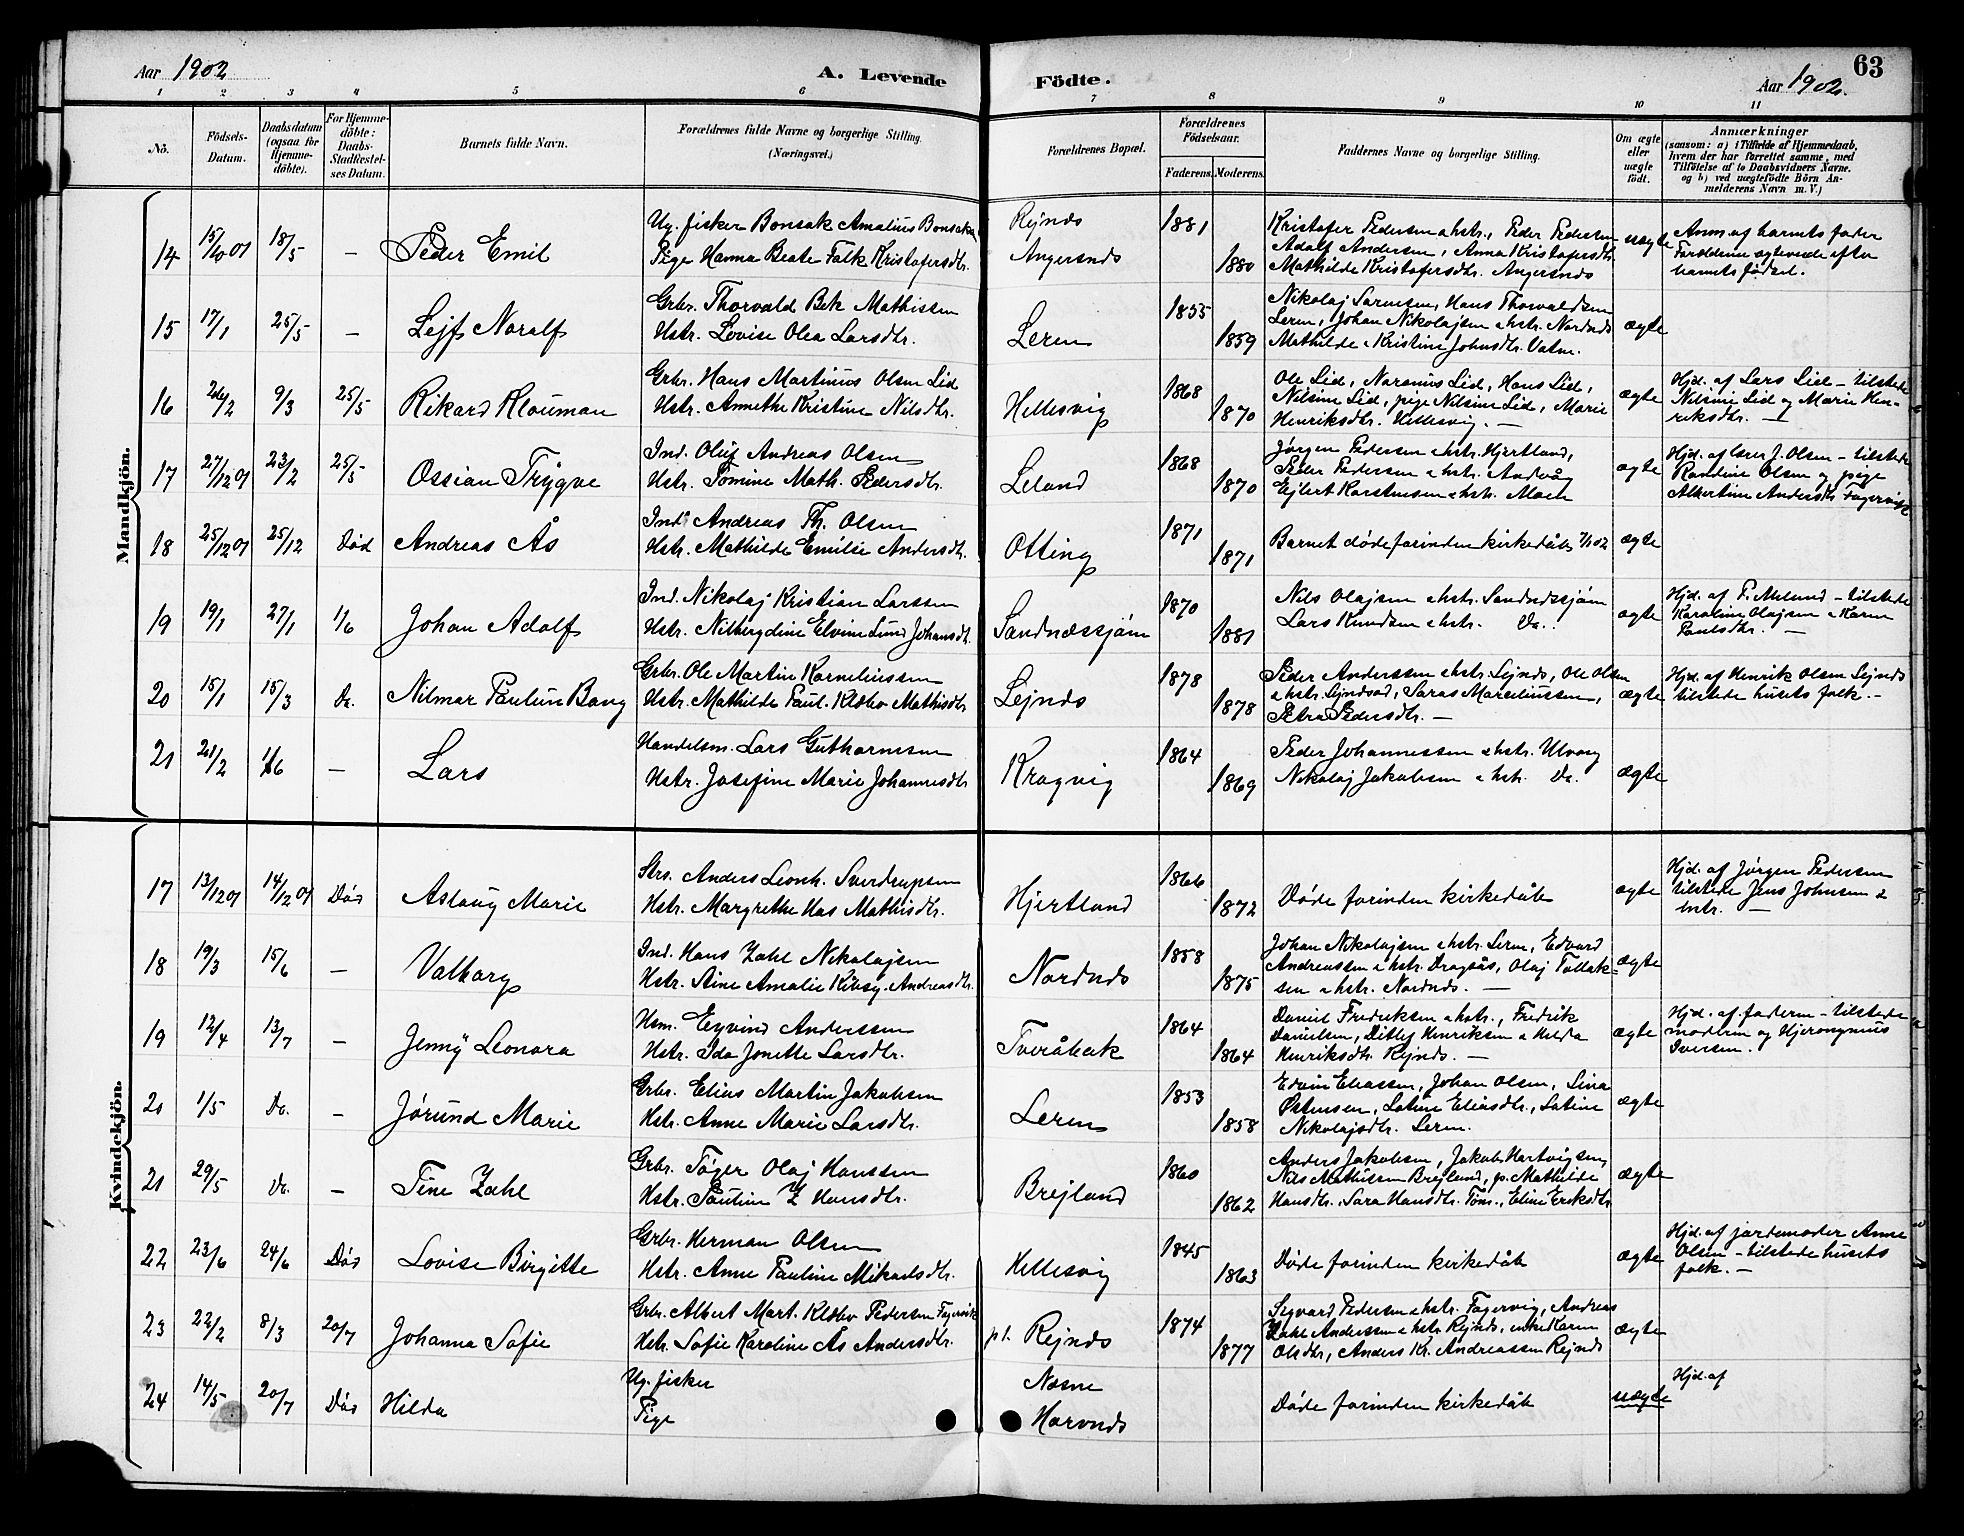 Aar 1902
A. Levende
Födte.
Aar 1902.
63
1 2 3 4 5 6 7 8 9 10 11
No.
Födsels-
Datum.
Daabsdatum
(ogsaa for
Hjemme-
döbte).
For Hjemme-
döbte:
Daabs-
Stadfæstel-
ses Datum.
Barnets fulde Navn.
Forældrenes fulde Navne og borgerlige Stilling.
(Næringsvei.)
Forældrenes Bopæl.
Forældrenes
Födselsaar.
Faderens. Moderens.
Faddernes Navne og borgerlige Stilling.
Om ægte
eller
uægte
födt.
Anmærkninger
(saasom: a) i Tilfælde af Hjemmedaab,
hvem der har forrettet samme, med
Tilföielse af to Daabsvidners Navne.
og b) ved uægtefödte Börn An-
melderens Navn m. V.)
Mandkjön.
14 15/10 01 18/5 — Peder Emil
Ug. fisker Bonsak Amalius Bonsaksen
Pige Hanna Beate Falk Kristofersdtr.
Rejnæs
Angersnæs
1881
1880
Kristofer Pedersen & hstr., Peder Pedersen
Adolf Andersen, Anna Kristofersdtr.
Mathilde Kristofersdtr. Angersnæs
uægte
Anm. af barnets fader
Forældrene ægteviede efter
barnets fødsel.
15 17/1 25/5 — Lejf Noralf
Grbr. Thorvald Bek Mathissen
Hstr. Lovise Olea Larsdtr.
Leren
1855
1859
Nikolaj Larsen, Hans Thorvaldsen
Leren, Johan Nikolajsen & hstr. Nordnæs
Mathilde & Kristine Johnsdtr. Vatne.
ægte
16 26/2 9/3 25/5 Rikard Klouman
Grbr. Hans Martinus Olsen Lid
Hstr. Annethe Kristine Nilsdtr.
Hellesvig
1868
1870
Ole Lid, Naranus Lid, Hans Lid,
Nilsine Lid, pige Nilsine Lid, Marie
Henriksdtr. Hellesvig. —
ægte
Hjd. af Lars Lid – tilstede
Nilsine Lid og Marie Hen-
riksdtr. —
17 27/12 01 23/2 25/5 Ossian Trygve
Ind. Oluf Andreas Olsen
Hstr. Tomine Math. Pedersdtr.
Leland
1868
1870
Jørgen Pedersen & hstr. Hjertland,
Peder Pedersen & hstr. Andvåg
Ejlert Karstensen & hstr. Moen
ægte
Hjd. af lærer J. Olsen – tilstede
Randine Olsen og pige
Albertine Andersdtr. Fagervik
18 25/12 01 25/12 Død Andreas Ås
Ind. Andreas Th. Olsen
Hstr. Mathilde Emilie Andersdtr.
Otting
1871
1871
Barnet døde forinden kirkedåb 7/1 02
ægte
19 19/1 27/1 1/6 Johan Adolf
Ind. Nikolaj Kristian Larssen
Hstr. Nilbergdine Elvine Lund Johansdtr.
Sandnæssjøen
1870
1881
Nils Olajsen & hstr. Sandnæssjøen
Lars Knudsen & hstr. Do.
ægte
Hjd. af P. Meland – tilstede
Karoline Olajsen & Karen
Paulsdtr. —
20 15/1 15/3 Do. Nilmar Paulin Bang
Grbr. Ole Martin Korneliussen
Hstr. Mathilde Paul. Klæbo Mathisdtr.
Lejnæs
1878
1878
Peder Anderssen & hstr. Lejnæs, Ole Olsen
& hstr. Lejnæs, Saras Marseliussen,
Petra Pedersdtr. —
ægte
Hjd. af Henrik Olsen Lejnæs
tilstede husets folk. —
21 21/2 1/6 — Lars
Handelsm. Lars Guthormsen
Hstr. Josefine Marie Johannesdtr.
Kragvig
1864
1869
Peder Johannessen & hstr. Ulvaag
Nikolaj Jakobsen & hstr. Do.
ægte
Kvindekjön.
17 13/12 01 14/12 01 Død Aslaug Marie
Strs. Anders Leonh. Sverdrupsen
Hstr. Margrethe Has Mathisdtr.
Hjertland
1866
1872
Døde forinden kirkedåb
ægte
Hjd. af Jørgen Pedersen
tilstede Jens Johnsen &
hstr. —
18 19/3 15/6 — Valborg
Ind. Hans Zahl Nikolajsen
Hstr. Aine Amalie Kibsg. Andreasdtr.
Nordnæs
1858
1875
Johan Nikolajsen & hstr. Leren, Edvard
Andreassen & hstr. Dragsås, Olaj Tollak-
sen & hstr. Nordnæs. —
ægte
19 12/4 13/7 — Jenny Leonora
Hsm. Eyvind Anderssen
Hstr. Ida Jonette Larsdtr.
Tveråbæk
1864
1864
Daniel Fredriksen & hstr., Fredrik
Danielsen, Ditlef Henriksen & Helda
Henriksdtr. Rejnæs. —
ægte
Hjd. af faderen – tilstede
moderen og Hjeronymus
Iversen.
20 1/5 Do. — Jørund Marie
Grbr. Elias Martin Jakobsen
Hstr. Anne Marie Larsdtr.
Leren
1853
1858
Edvin Eliassen, Johan Olsen, Lina
Østensen, Lotine Eliasdtr., Lotine
Nikolajsdtr. Leren.
ægte
21 29/5 Do. — Tine Zahl
Grbr. Tøger Olaj Hanssen
Hstr. Pauline Z Hansdtr.
Brejland
1860
1862
Anders Jakobsen, Jakob Hartvigsen,
Nils Mathissen Brejland, p. Mathilde
Hansdtr. Sara Hansdtr. Tom., Eline Eriksdtr.
ægte
22 23/6 24/6 Død Lovise Birgitte
Grbr. Herman Olsen
Hstr. Anne Pauline Mikaelsdtr.
Hellesvig
1845
1863
Døde forinden kirkedåb
ægte
Hjd. af jordemoder Anne
Olsen – tilstede husets
folk. —
23 22/2 8/3 20/7 Johanna Sofie
Grbr. Albert Mart. Klæbo Pedersen Fagervik
Hstr. Sofie Karoline Ås Andersdtr.
pt. Rejnæs
1874
1877
Segvard Pedersen & hstr. Fagervig, Andreas
Zahl Anderssen & hstr. Rejnæs, enke Karen
Olsdtr., Anders Kr. Andreassen Rejnæs
ægte
24 14/5 20/7 Død Hilda
Ug. fisker
Pige
Næsne
Horvnæs
Døde forinden kirkedåb
uægte
Hjd. af